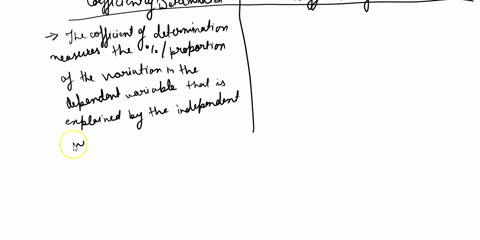 Coefficient of Determination
→ The coefficient of determination
measures the %/proportion
of the variation in the
dependent variable that is
explained by the independent